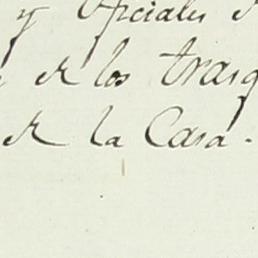 y Oficiales d
de los trasq
de la Casa.